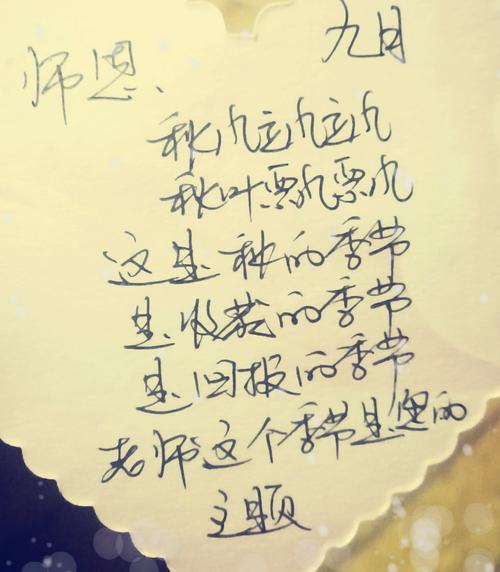 九月
师恩、
秋风飒飒
秋叶飘飘
这是秋的季节
是收获的季节
是回报的季节
老师这个季节是您的
主题